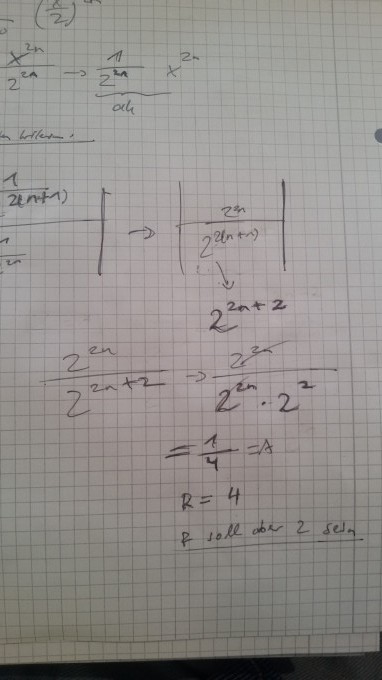 (x/2)^2n
x^2n / 2^2n → 1 / 2^2n x^2n
ak
1 / 2(n+1) | → | 2^2n / 2^2(n+1) |
1 / 2n
2^2n+2
2^2n / 2^2n+2 → 2^2n / 2^2n · 2^2
= 1/4 = A
R = 4
R soll aber 2 sein